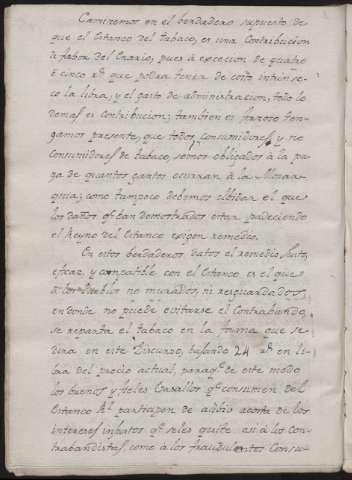 Caminemos en el berdadero supuesto de
que el Estanco del tabaco, es una Contribucion
à fabor del Erario, pues à excecion de quatro
ò cinco r.s que podra tener de costo intrinse-
co la libra, y el gasto de administracion, todo lo
demas es contribucion; tambien es forzoso ten-
gamos presente, que todos, consumidores, y no
Consumidores de tabaco, somos obligados à la pa-
ga de quantos gastos ocurran à la Monar-
quia; como tampoco debemos olbidar el que
los daños q.e han demostrados estar padeciendo
el Reyno del Estanco exigen remedio.
En estos berdaderos datos el remedio Justo,
eficaz, y compatible con el Estanco, es el que
à los Pueblos no murados, ni resguardados,
en donde no puede evitarse el Contrabando,
se reparta el tabaco en la forma que se
dira en este Discurso, bajando 24 r.s en li-
bra del precio actual, para q.e de este modo
los buenos y fieles Vasallos q.e consumen del
Estanco R.l participen de alibio acosta de los
intereses injustos q.e se les quite asi à los Con-
trabandistas, como à los fraudulentos Consu-